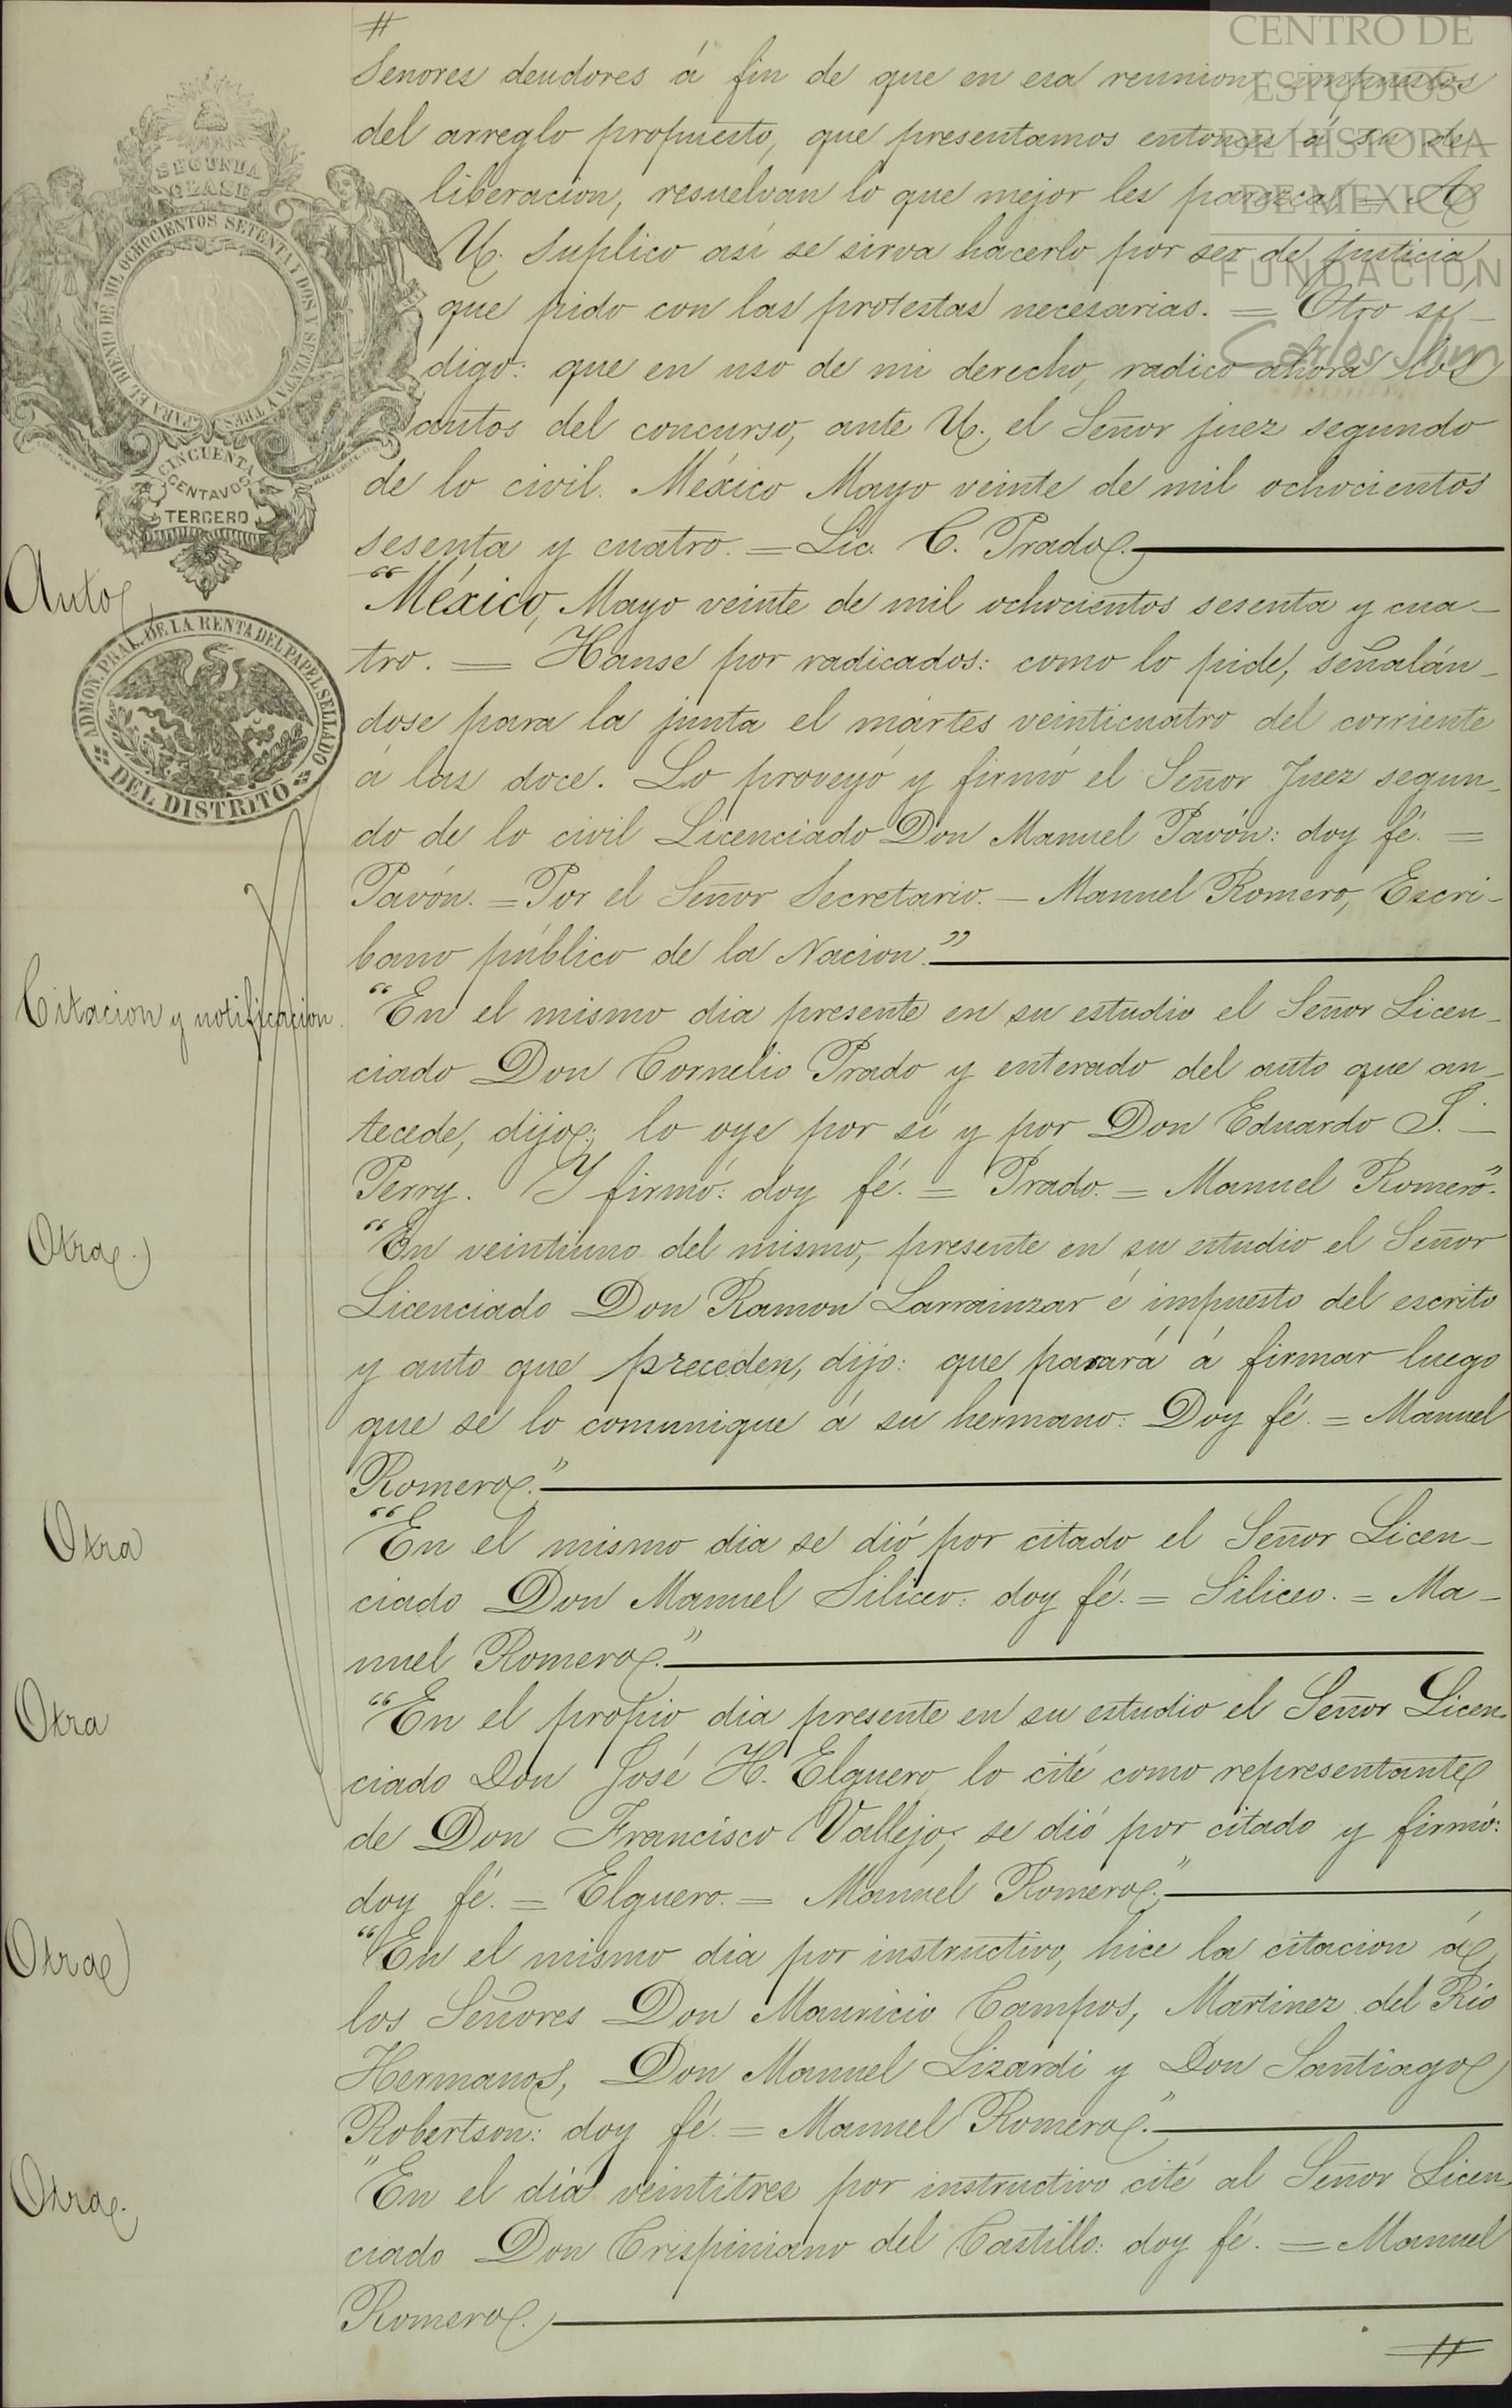 CENTRO DE
ESTUDIOS
DE HISTORIA
DE MEXICO
FUNDACIÓN
Carlos Slim
SEGUNDA
CLASE
PARA EL BIENIO DE MIL OCHOCIENTOS SETENTA Y DOS Y SETENTA Y TRES
CINCUENTA
CENTAVOS
TERCERO
#
Señores deudores á fin de que en esa reunion, impuestos
del arreglo propuesto, que presentamos entonces á su de-
liberacion, resuelvan lo que mejor les parezca = A
U. Suplico así se sirva hacerlo por ser de justicia
que pido con las protestas necesarias. = Otro sí
digo: que en uso de mi derecho, radico ahora los
autos del concurso, ante U., el Señor juez segundo
de lo civil. México Mayo veinte de mil ochocientos
sesenta y cuatro. = Lic. C. Prado.
Auto
"México, Mayo veinte de mil ochocientos sesenta y cua-
tro. = Hanse por radicados: como lo pide, señalán-
dose para la junta el mártes veinticuatro del corriente
á las doce. Lo proveyó y firmó el Señor Juez segun-
do de lo civil Licenciado Don Manuel Pavón: doy fé. =
Pavón. = Por el Señor Secretario. - Manuel Romero, Escri-
bano público de la Nacion."
ADMON. PRAL. DE LA RENTA DEL PAPEL SELLADO
DEL DISTRITO
Citacion y notificacion.
"En el mismo dia presente en su estudio el Señor Licen-
ciado Don Cornelio Prado y enterado del auto que an-
tecede, dijo: lo oye por sí y por Don Eduardo J.
Perry. Y firmó: doy fé. = Prado. = Manuel Romero".
Otra.
"En veintiuno del mismo, presente en su estudio el Señor
Licenciado Don Ramon Larrainzar é impuesto del escrito
y auto que preceden, dijo: que pasará á firmar luego
que se lo comunique á su hermano: Doy fé. = Manuel
Romero."
Otra
"En el mismo dia se dió por citado el Señor Licen-
ciado Don Manuel Siliceo: doy fé. = Siliceo. = Ma-
nuel Romero."
Otra
"En el propio dia presente en su estudio el Señor Licen-
ciado Don José H. Elguero lo cité como representante
de Don Francisco Vallejo; se dió por citado y firmó:
doy fé. = Elguero. = Manuel Romero."
Otra
"En el mismo dia por instructivo, hice la citacion á
los Señores Don Mauricio Campos, Martinez del Rio
Hermanos, Don Manuel Lizardi y Don Santiago
Robertson: doy fé. = Manuel Romero."
Otra.
"En el dia veintitres por instructivo cité al Señor Licen-
ciado Don Crispiniano del Castillo: doy fé. = Manuel
Romero.
#